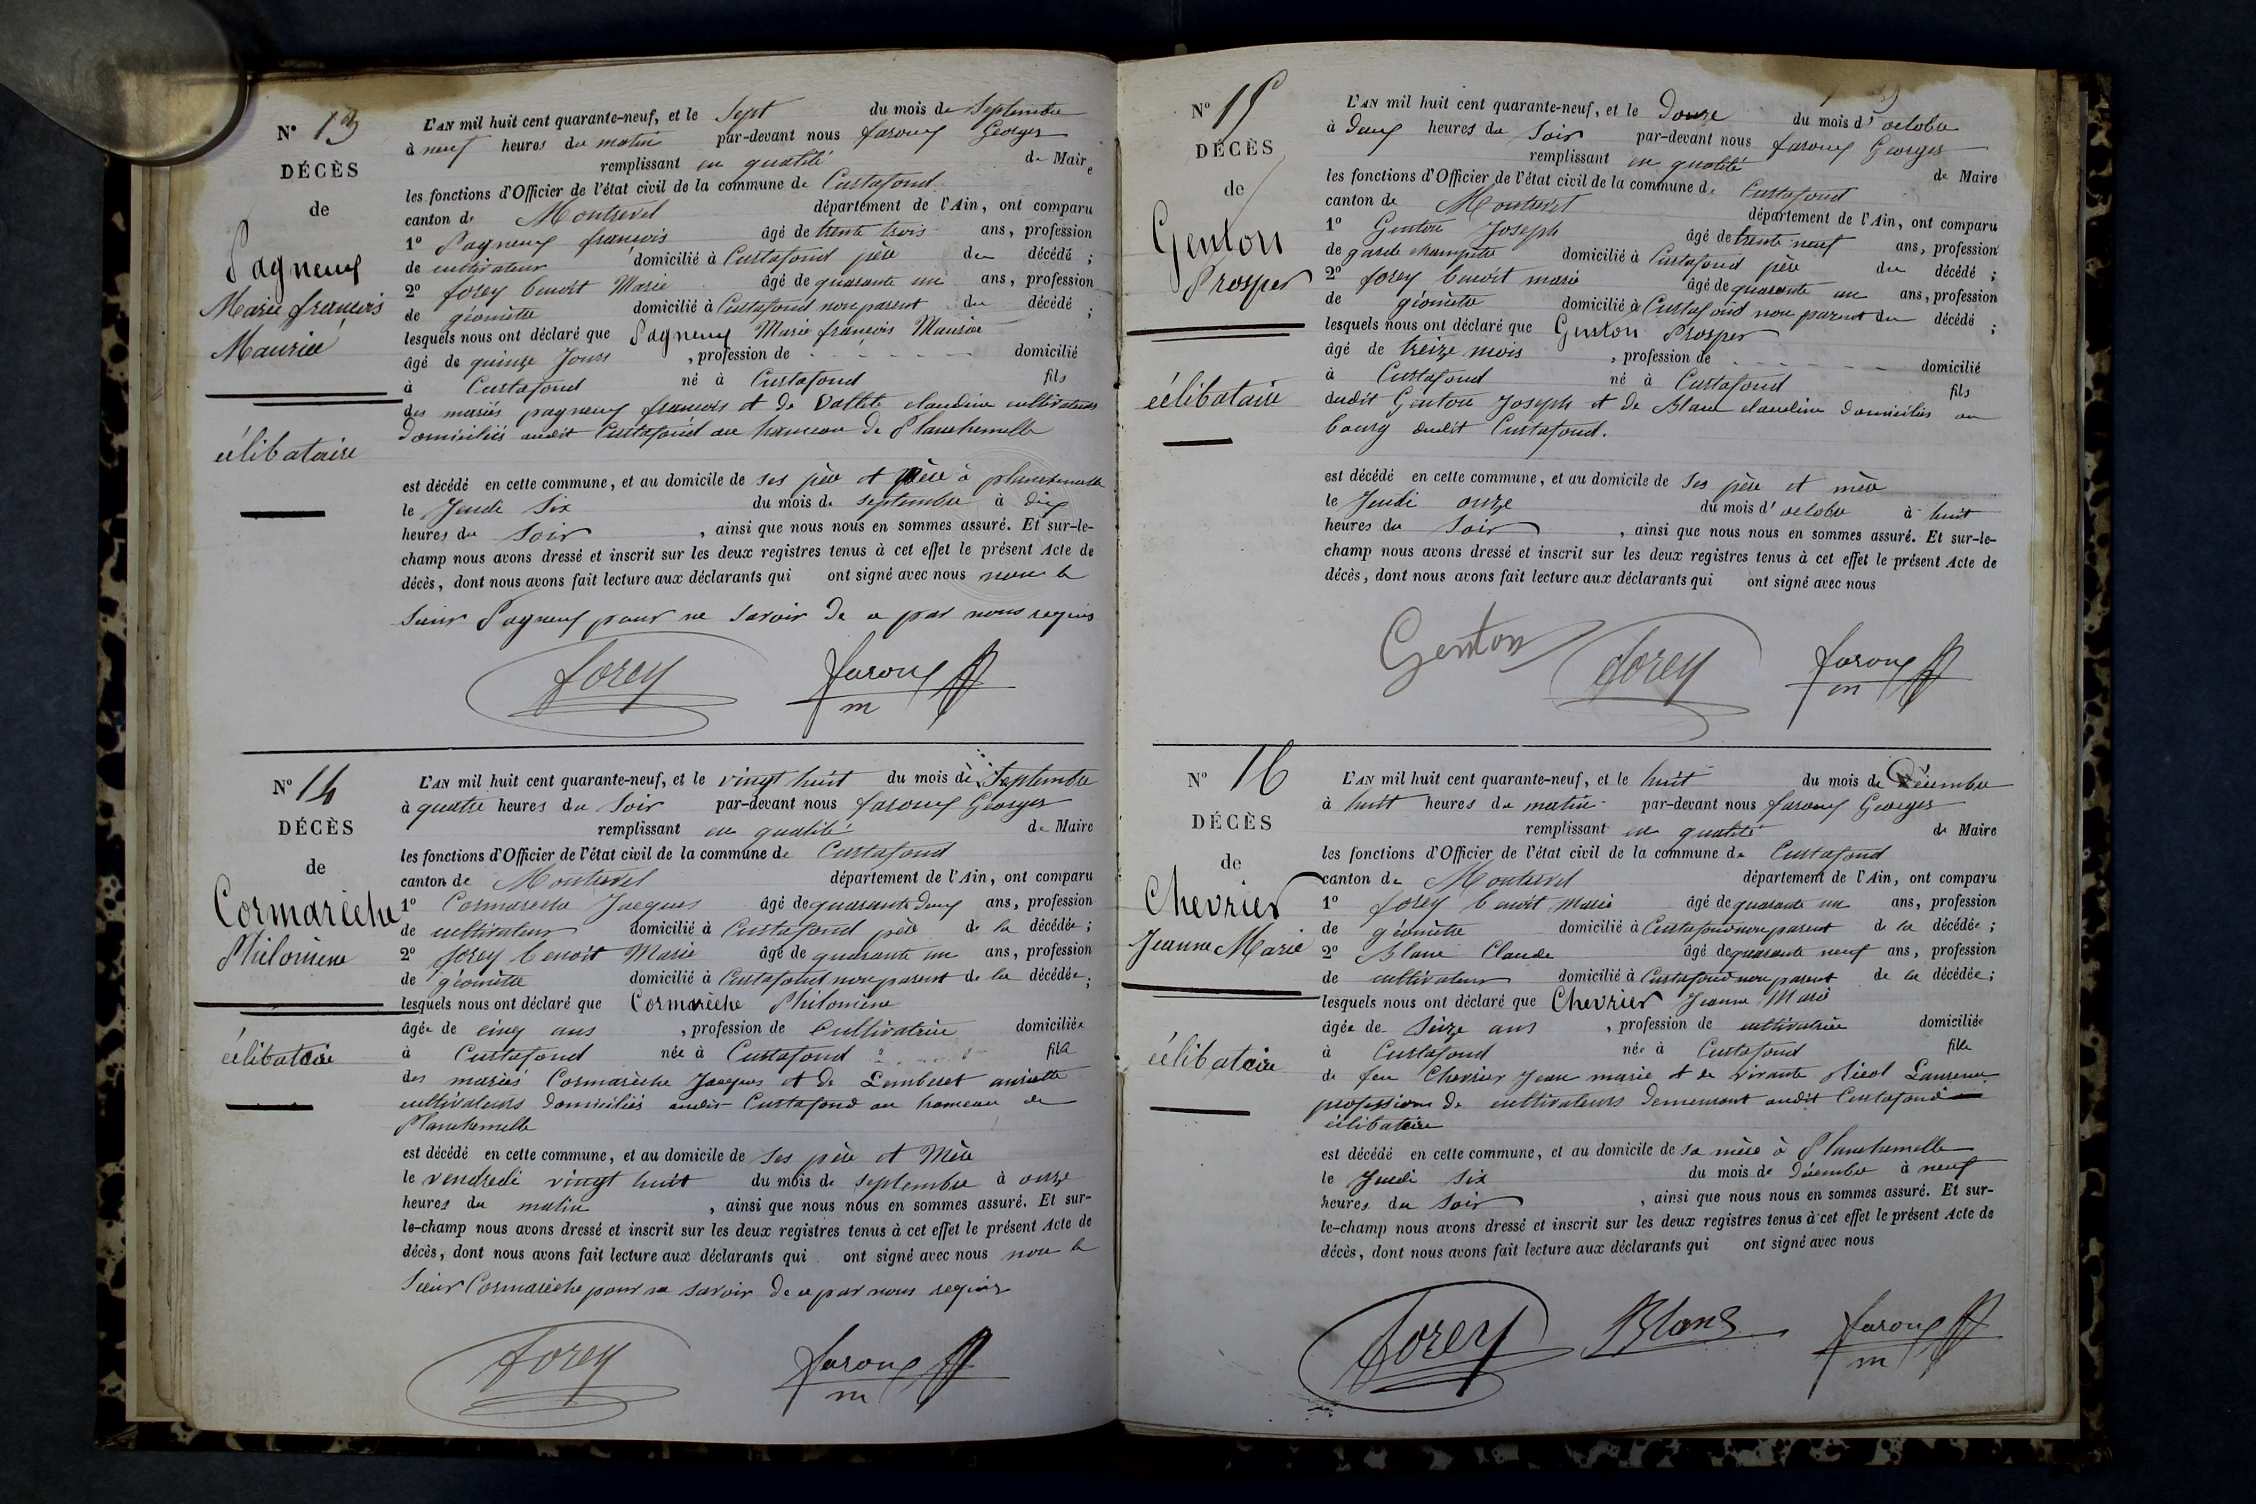 N° 13
DÉCÈS
de
Pagneux
Marie françois
Maurice
célibataire
L'AN mil huit cent quarante-neuf, et le Sept du mois de Septembre
à neuf heures du matin par-devant nous faroux Georges
remplissant en qualité de Maire
les fonctions d'Officier de l'état civil de la commune de Curtafond
canton de Montrevel département de l'Ain, ont comparu
1° Pagneux françois âgé de trente trois ans, profession
de cultivateur domicilié à Curtafond père du décédé ;
2° forey benoit Marie âgé de quarante un ans, profession
de géomètre domicilié à Curtafond non parent du décédé ;
lesquels nous ont déclaré que Pagneux Marie françois Maurice
âgé de quinze Jours , profession de domicilié
à Curtafond né à Curtafond fils
des mariés pagneux françois et de Vallete claudine cultivateurs
domiciliés audit Curtafond au hameau de Planchemelle
est décédé en cette commune, et au domicile de ses père et mère à planchemelle
le Jeudi Six du mois de septembre à dix
heures du Soir , ainsi que nous nous en sommes assuré. Et sur-le-
champ nous avons dressé et inscrit sur les deux registres tenus à cet effet le présent Acte de
décès, dont nous avons fait lecture aux déclarants qui ont signé avec nous non le
Sieur Pagneux pour ne savoir de ce par nous requis
forey faroux
m
N° 14
DÉCÈS
de
Cormarèche
Philomène
célibataire
L'AN mil huit cent quarante-neuf, et le vingt huit du mois de Septembre
à quatre heures du Soir par-devant nous faroux Georges
remplissant en qualité de Maire
les fonctions d'Officier de l'état civil de la commune de Curtafond
canton de Montrevel département de l'Ain, ont comparu
1° Cormarèche Jacques âgé de quarante deux ans, profession
de cultivateur domicilié à Curtafond père de la décédée ;
2° forey benoit Marie âgé de quarante un ans, profession
de géomètre domicilié à Curtafond non parent de la décédée ;
lesquels nous ont déclaré que Cormarèche Philomène
âgée de cinq ans , profession de Cultivatrice domiciliée
à Curtafond née à Curtafond fille
des mariés Cormarèche Jacques et de Lemberet
cultivateurs domiciliés audit Curtafond au hameau de
Planchemelle
est décédé en cette commune, et au domicile de ses père et Mère
le vendredi vingt huit du mois de septembre à onze
heures du matin , ainsi que nous nous en sommes assuré. Et sur-
le-champ nous avons dressé et inscrit sur les deux registres tenus à cet effet le présent Acte de
décès, dont nous avons fait lecture aux déclarants qui ont signé avec nous non le
Sieur Cormarèche pour ne savoir de ce par nous requis
forey faroux
m
N° 15
DÉCÈS
de
Genton
Prosper
célibataire
L'AN mil huit cent quarante-neuf, et le Douze du mois d'octobre
à Deux heures du Soir par-devant nous faroux Georges
remplissant en qualité de Maire
les fonctions d'Officier de l'état civil de la commune de Curtafond
canton de Montrevel département de l'Ain, ont comparu
1° Genton Joseph âgé de trente neuf ans, profession
de garde champetre domicilié à Curtafond père du décédé ;
2° forey benoit marie âgé de quarante un ans, profession
de géomètre domicilié à Curtafond non parent du décédé ;
lesquels nous ont déclaré que Genton Prosper
âgé de treize mois , profession de domicilié
à Curtafond né à Curtafond fils
dudit Genton Joseph et de Blanc claudine domiciliés au
bourg dudit Curtafond.
est décédé en cette commune, et au domicile de ses père et mère
le Jeudi onze du mois d'octobre à huit
heures du Soir , ainsi que nous nous en sommes assuré. Et sur-le-
champ nous avons dressé et inscrit sur les deux registres tenus à cet effet le présent Acte de
décès, dont nous avons fait lecture aux déclarants qui ont signé avec nous
Genton forey faroux
m
N° 16
DÉCÈS
de
Chevrier
Jeanne Marie
célibataire
L'AN mil huit cent quarante-neuf, et le huit du mois de Décembre
à huit heures du matin par-devant nous faroux Georges
remplissant en qualité de Maire
les fonctions d'Officier de l'état civil de la commune de Curtafond
canton de Montrevel département de l'Ain, ont comparu
1° forey benoit Marie âgé de quarante un ans, profession
de géomètre domicilié à Curtafond non parent de la décédée ;
2° Blanc Claude âgé de quarante neuf ans, profession
de cultivateur domicilié à Curtafond non parent de la décédée ;
lesquels nous ont déclaré que Chevrier Jeanne Marie
âgée de Seize ans , profession de cultivatrice domiciliée
à Curtafond née à Curtafond fille
de feu Chevrier Jean marie et de vivante Laurence
profession de cultivateurs demeurant audit Curtafond
célibataire
est décédé en cette commune, et au domicile de sa mère à Planchemelle
le Jeudi Six du mois de Décembre à neuf
heures du Soir , ainsi que nous nous en sommes assuré. Et sur-
le-champ nous avons dressé et inscrit sur les deux registres tenus à cet effet le présent Acte de
décès, dont nous avons fait lecture aux déclarants qui ont signé avec nous
forey Blanc faroux
m